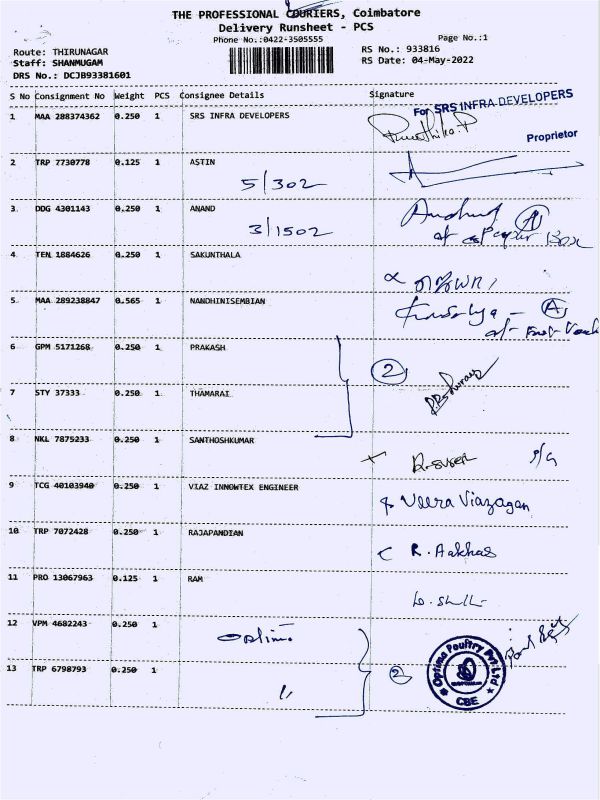 THE PROFESSIONAL COURIERS, Coimbatore
Delivery Runsheet - PCS
Phone No.:0422-3505555
Page No.:1
Route: THIRUNAGAR
RS No.: 933816
Staff: SHANMUGAM
RS Date: 04-May-2022
DRS No.: DCJB93381601
S No Consignment No Weight PCS Consignee Details Signature
For SRS INFRA DEVELOPERS
1 MAA 288374362 0.250 1 SRS INFRA DEVELOPERS
Proprietor
2 TRP 7730778 0.125 1 ASTIN
5/302
3 DDG 4301143 0.250 1 ANAND
3/1502
4 TEN 1884626 0.250 1 SAKUNTHALA
5 MAA 289238847 0.565 1 NANDHINISEMBIAN
6 GPM 5171268 0.250 1 PRAKASH
2
7 STY 37333 0.250 1 THAMARAI
8 NKL 7875233 0.250 1 SANTHOSHKUMAR
9 TCG 40103940 0.250 1 VIAZ INNOWTEX ENGINEER
Veera Viazagan
10 TRP 7072428 0.250 1 RAJAPANDIAN
R. Aakhas
11 PRO 13067963 0.125 1 RAM
12 VPM 4682243 0.250 1
Optima Poultry Pvt Ltd
CBE
13 TRP 6798793 0.250 1
"
2